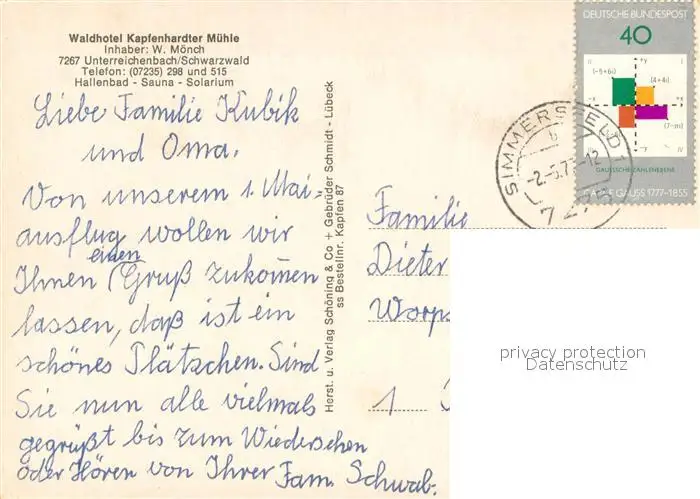 Waldhotel Kapfenhardter Mühle
Inhaber: W. Mönch
7267 Unterreichenbach/Schwarzwald
Telefon: (07235) 298 und 515
Hallenbad - Sauna - Solarium
Liebe Familie Kubik
und Oma.
Von unserem 1. Mai=
ausflug wollen wir
einen
Ihnen (Gruß zukommen
lassen, daß ist ein
schönes Plätzchen. Sind
Sie nun alle vielmals
gegrüßt bis zum Wiedersehen
oder Hören von Ihrer Fam. Schwab.
Herst. u. Verlag Schöning & Co + Gebrüder Schmidt - Lübeck
ss Bestellnr. Kapfen 87
DEUTSCHE BUNDESPOST
40
II
+Y
I
(-5+6i)
(4+4i)
-X
+X
(7-mi)
III
-Y
IV
GAUSSSCHE ZAHLENEBENE
CARL F. GAUSS 1777-1855
SIMMERSFELD 1
b
-2.-5.7 -12
727
Familie
Dieter
Worps
1
privacy protection
Datenschutz